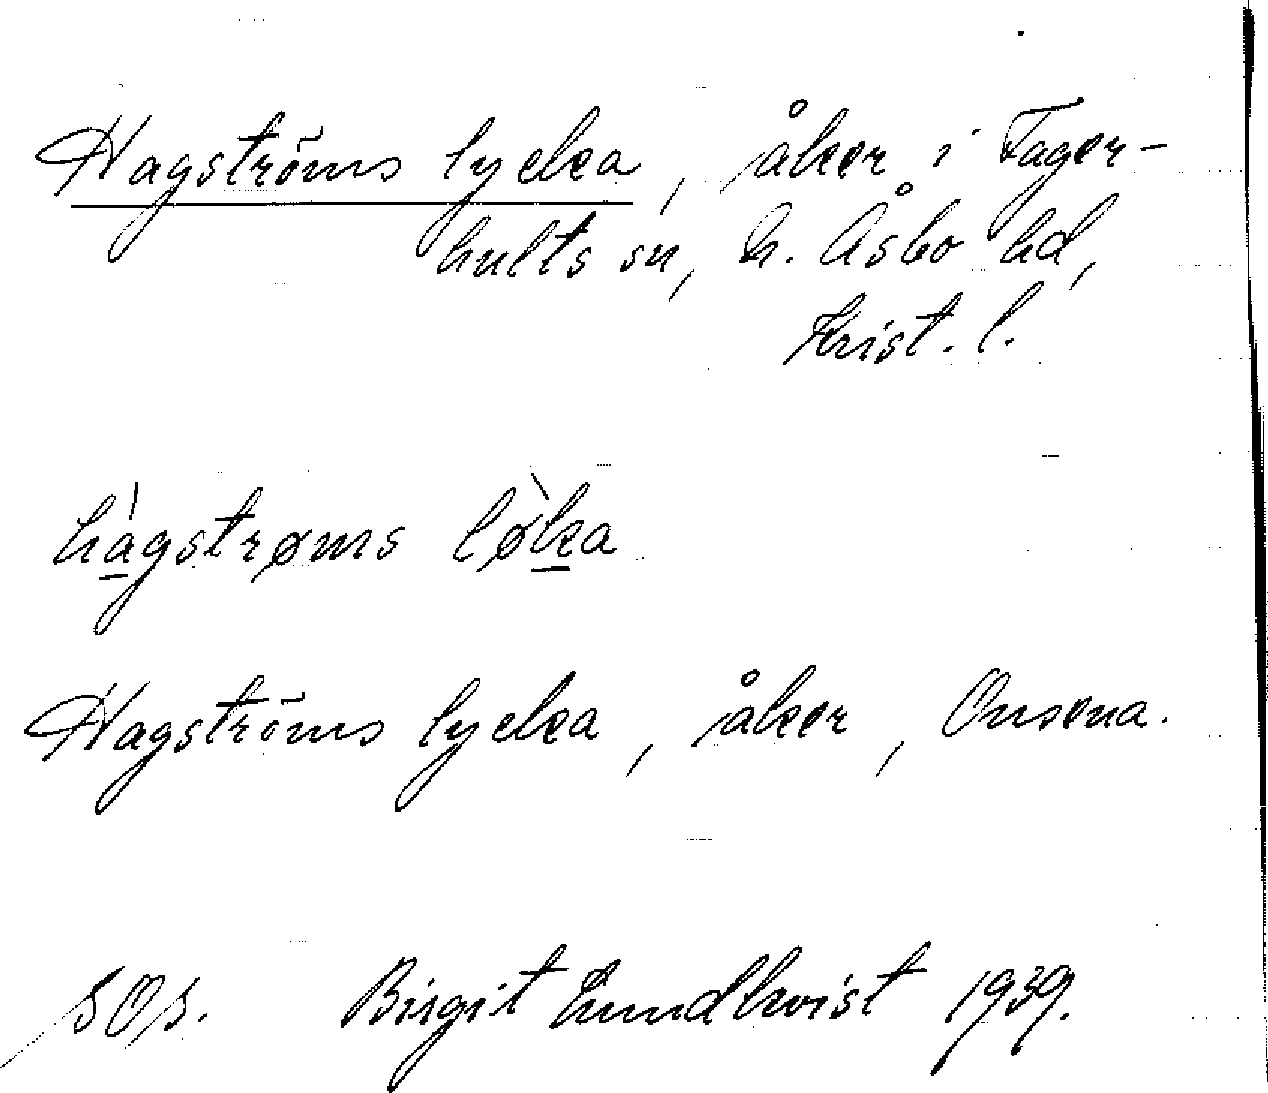 Hagströms lycka, åker i Fager-
hults sn, N. Åsbo hd,
Krist. l.
hàgstrøms lø̀ka
Hagströms lycka, åker, Onsena.
SOS. Birgit Lundkvist 1939.